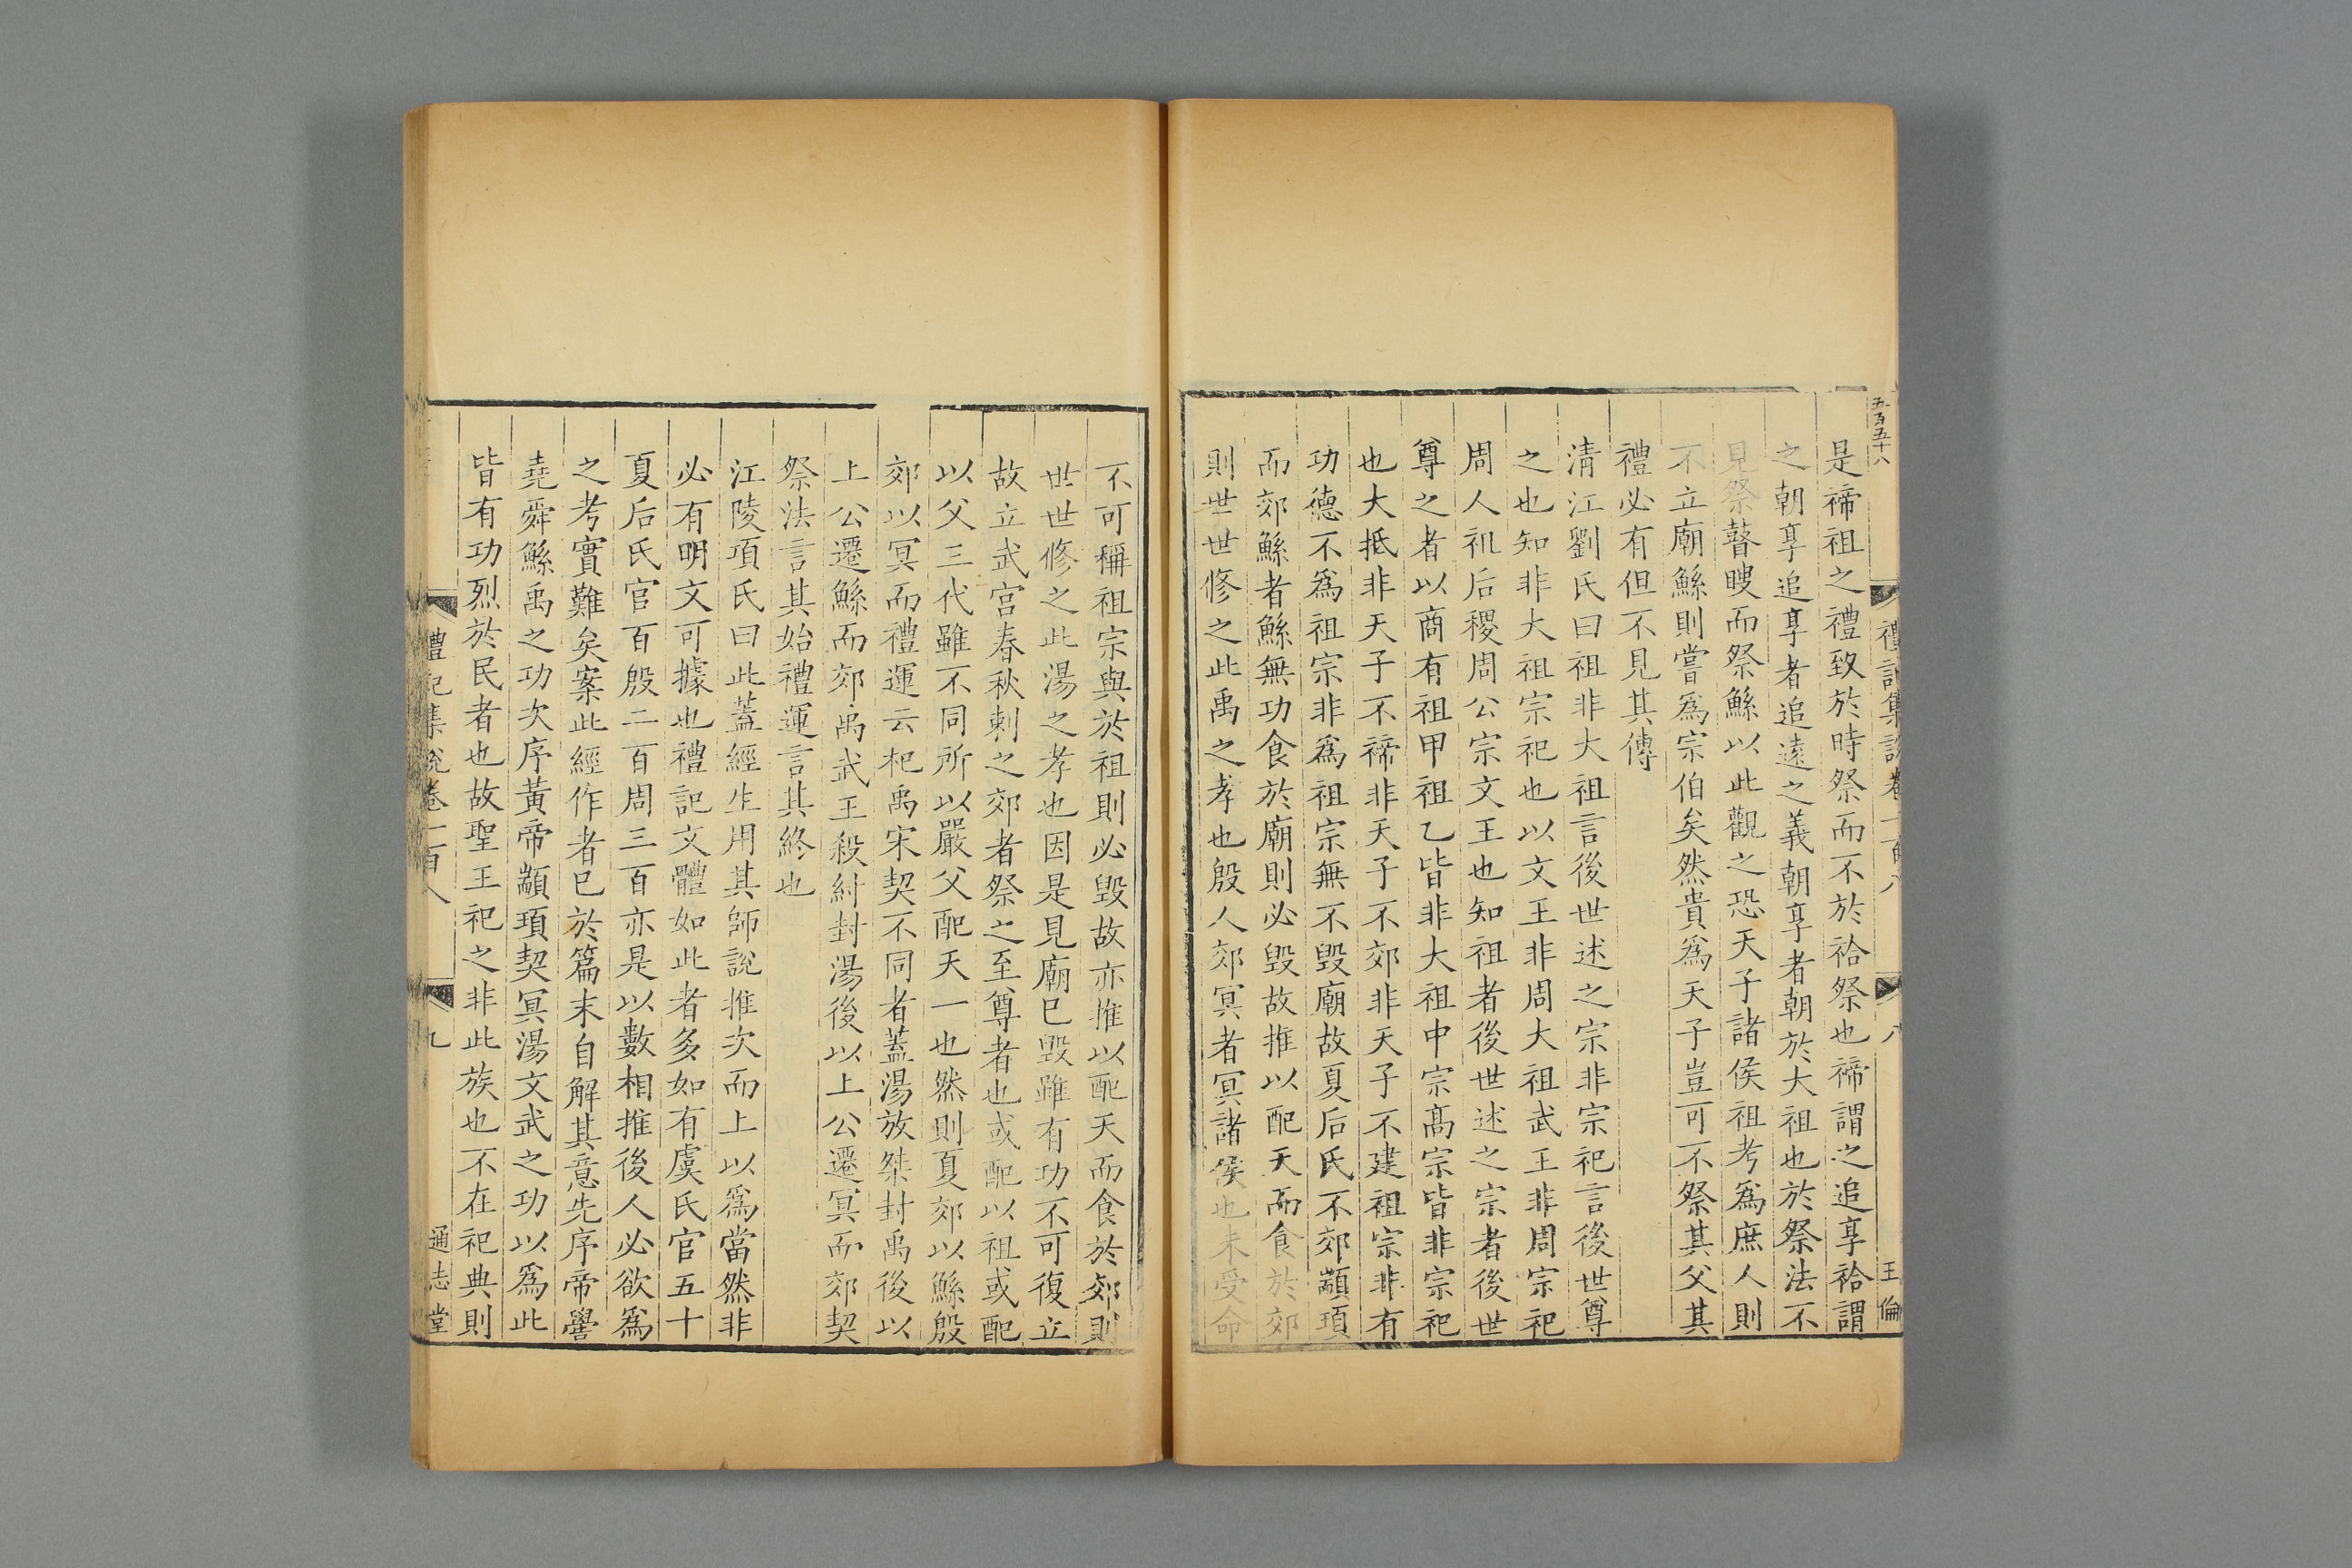 五百五十八
禮記集說卷一百八
八
王倫
是禘祖之禮致於時祭而不於祫祭也禘謂之追享祫謂
之朝享追享者追遠之義朝享者朝於大祖也於祭法不
見祭瞽瞍而祭鯀以此觀之恐天子諸侯祖考爲庶人則
不立廟鯀則嘗爲宗伯矣然貴爲天子豈可不祭其父其
禮必有但不見其傳
清江劉氏曰祖非大祖言後世述之宗非宗祀言後世尊
之也知非大祖宗祀也以文王非周大祖武王非周宗祀
周人祖后稷周公宗文王也知祖者後世述之宗者後世
尊之者以商有祖甲祖乙皆非大祖中宗髙宗皆非宗祀
也大抵非天子不禘非天子不郊非天子不建祖宗非有
功德不爲祖宗非爲祖宗無不毀廟故夏后氏不郊顓頊
而郊鯀者鯀無功食於廟則必毀故推以配天而食於郊
則世世修之此禹之孝也殷人郊冥者冥諸侯也未受命
不可稱祖宗與於祖則必毀故亦推以配天而食於郊則
世世修之此湯之孝也因是見廟巳毀雖有功不可復立
故立武宫春秋刺之郊者祭之至尊者也或配以祖或配
以父三代雖不同所以嚴父配天一也然則夏郊以鯀殷
郊以冥而禮運云杞禹宋契不同者蓋湯放桀封禹後以
上公遷鯀而郊禹武王殺紂封湯後以上公遷冥而郊契
祭法言其始禮運言其終也
江陵項氏曰此蓋經生用其師說推次而上以爲當然非
必有明文可據也禮記文體如此者多如有虞氏官五十
夏后氏官百殷二百周三百亦是以數相推後人必欲爲
之考實難矣案此經作者巳於篇末自解其意先序帝嚳
堯舜鯀禹之功次序黃帝顓頊契冥湯文武之功以爲此
皆有功烈於民者也故聖王祀之非此族也不在祀典則
禮記集說卷一百八
九
通志堂